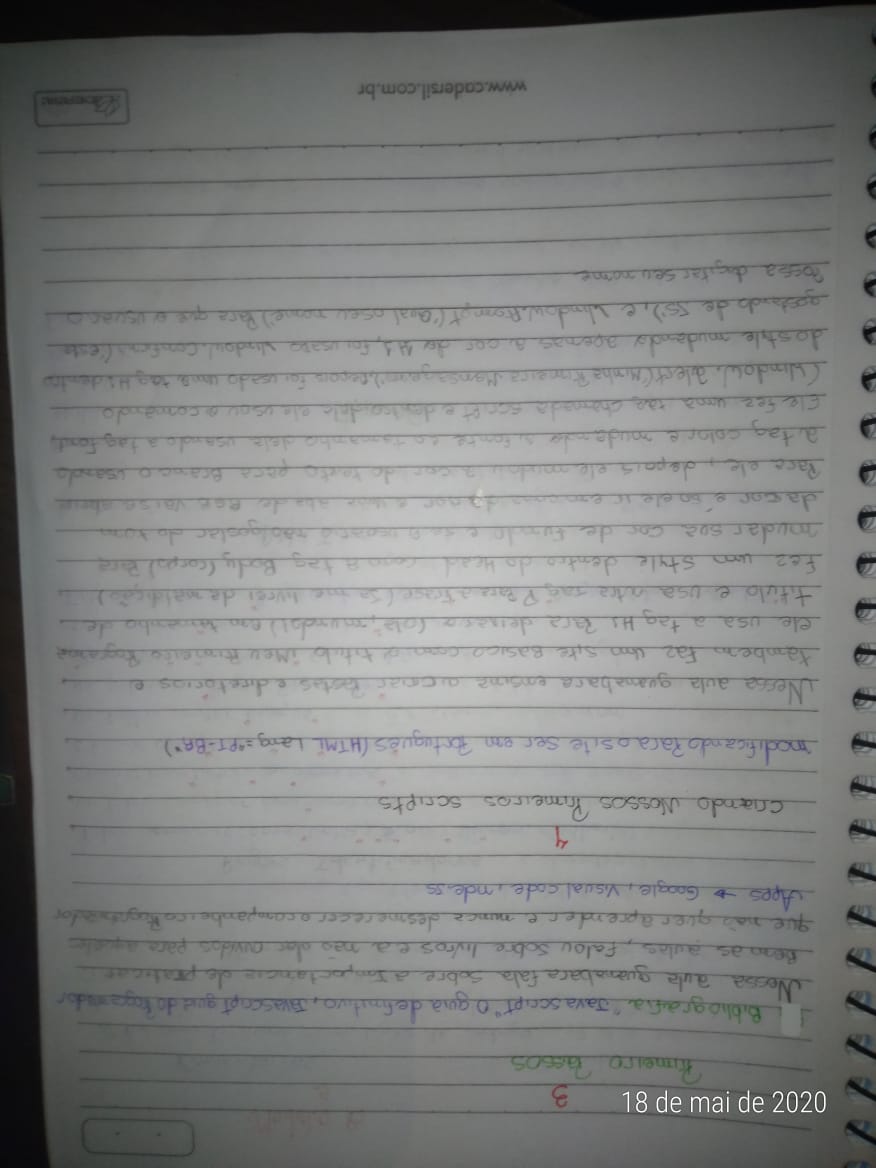 18 de mai de 2020
3
Primeiro Passos
Bibliografia "Javascript" O guia definitivo, Javascript guia do Programador
Nessa aula guanabara fala sobre a importancia de praticar
Bem as aulas, falou sobre livros e a não dar ouvidos para aqueles
que não quer aprender e nunca desmerecer o companheiro Programador
Apps → Google, Visual code, node.js
4
criando Nossos Primeiros scripts
modificando Para o site ser em Português (HTML Lang="PT-BR")
Nessa aula guanabara ensina a criar Pastas e diretórios e
tambem faz um site Basico com o titulo (Meu Primeiro Programa
ele usa a tag H1 Para deixar o (olá, mundo!) em tamanho de
titulo e usa outra tag P Para a Frase (Ja me livrei da maldição)
Fez um style dentro do Head com a tag Body (corpo) Para
mudar sua cor de fundo e se o usuario não gostar do tom
da cor é so ele ir em cima da cor e uma aba de RGB vai se abrir
Para ele, depois ele mudou a cor do texto para Branco usando
a tag color e mudando a fonte e o tamanho dela usando a tag font,
Ele fez uma tag chamada script e dentro dela ele usou o comando
(Window.alert('Minha Primeira Mensagem'), Depois foi usado uma tag H1 dentro
do style mudando apenas a cor do H1, foi usado Window.confirm('esta
gostando de JS'), e Window.Prompt('Qual o seu nome') Para que o usuario
Possa digitar seu nome
www.cadersil.com.br